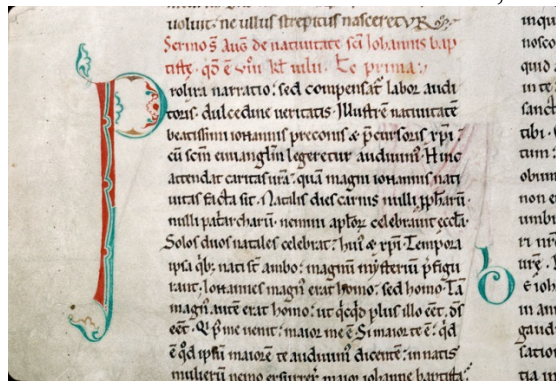 uoluit, ne ullus strepitus nasceretVR
Sermo s̄ Aug̅ de natiuitate sc̄i Iohannis bap
tistę. qd̄ ē kl̄ iulii. Lc̄ prima.
Prolixa narratio: sed compensat̄ labor audi
toris. dulcedine ueritatis. Illustrē natiuitatē
beatissimi iohannis preconis & p̄cursoris xp̄i
cū sc̄m euuangl̄iū legeretur audiuimꝰ. Hinc
attendat caritas ur̄a. quā magni iohannis nati
uitas facta sit. Natalis dies carnis nulli ꝓph̄arū
nulli pat̄archarū. nemini apl̄oꝝ celebrauit ęccl̄a.
Solos duos natales celebrat. huiꝰ & xp̄i. Tempora
ipsa qb; nati st̄ ambo. magnū mysteriū p̄figu
rant. Iohannes magnꝰ erat homo. sed homo. Tā
magnꝰ autē erat homo. ut qcqd plus illo eēt, d̄s
eēt. Q pꝰ me uenit. maior me ē. Si maior te ē. qd
ē qd ipsū maiorē te audiuimꝰ dicentē. in natis
mulierū nemo exsurrex̄ maior iohanne baptista.
inqu
nosco
quid
in te
sanct
tibi
tum
obum
non e
umbr
ri nr̄
ur̄ę
b
E ioh
in am
gaud
sation
tia in